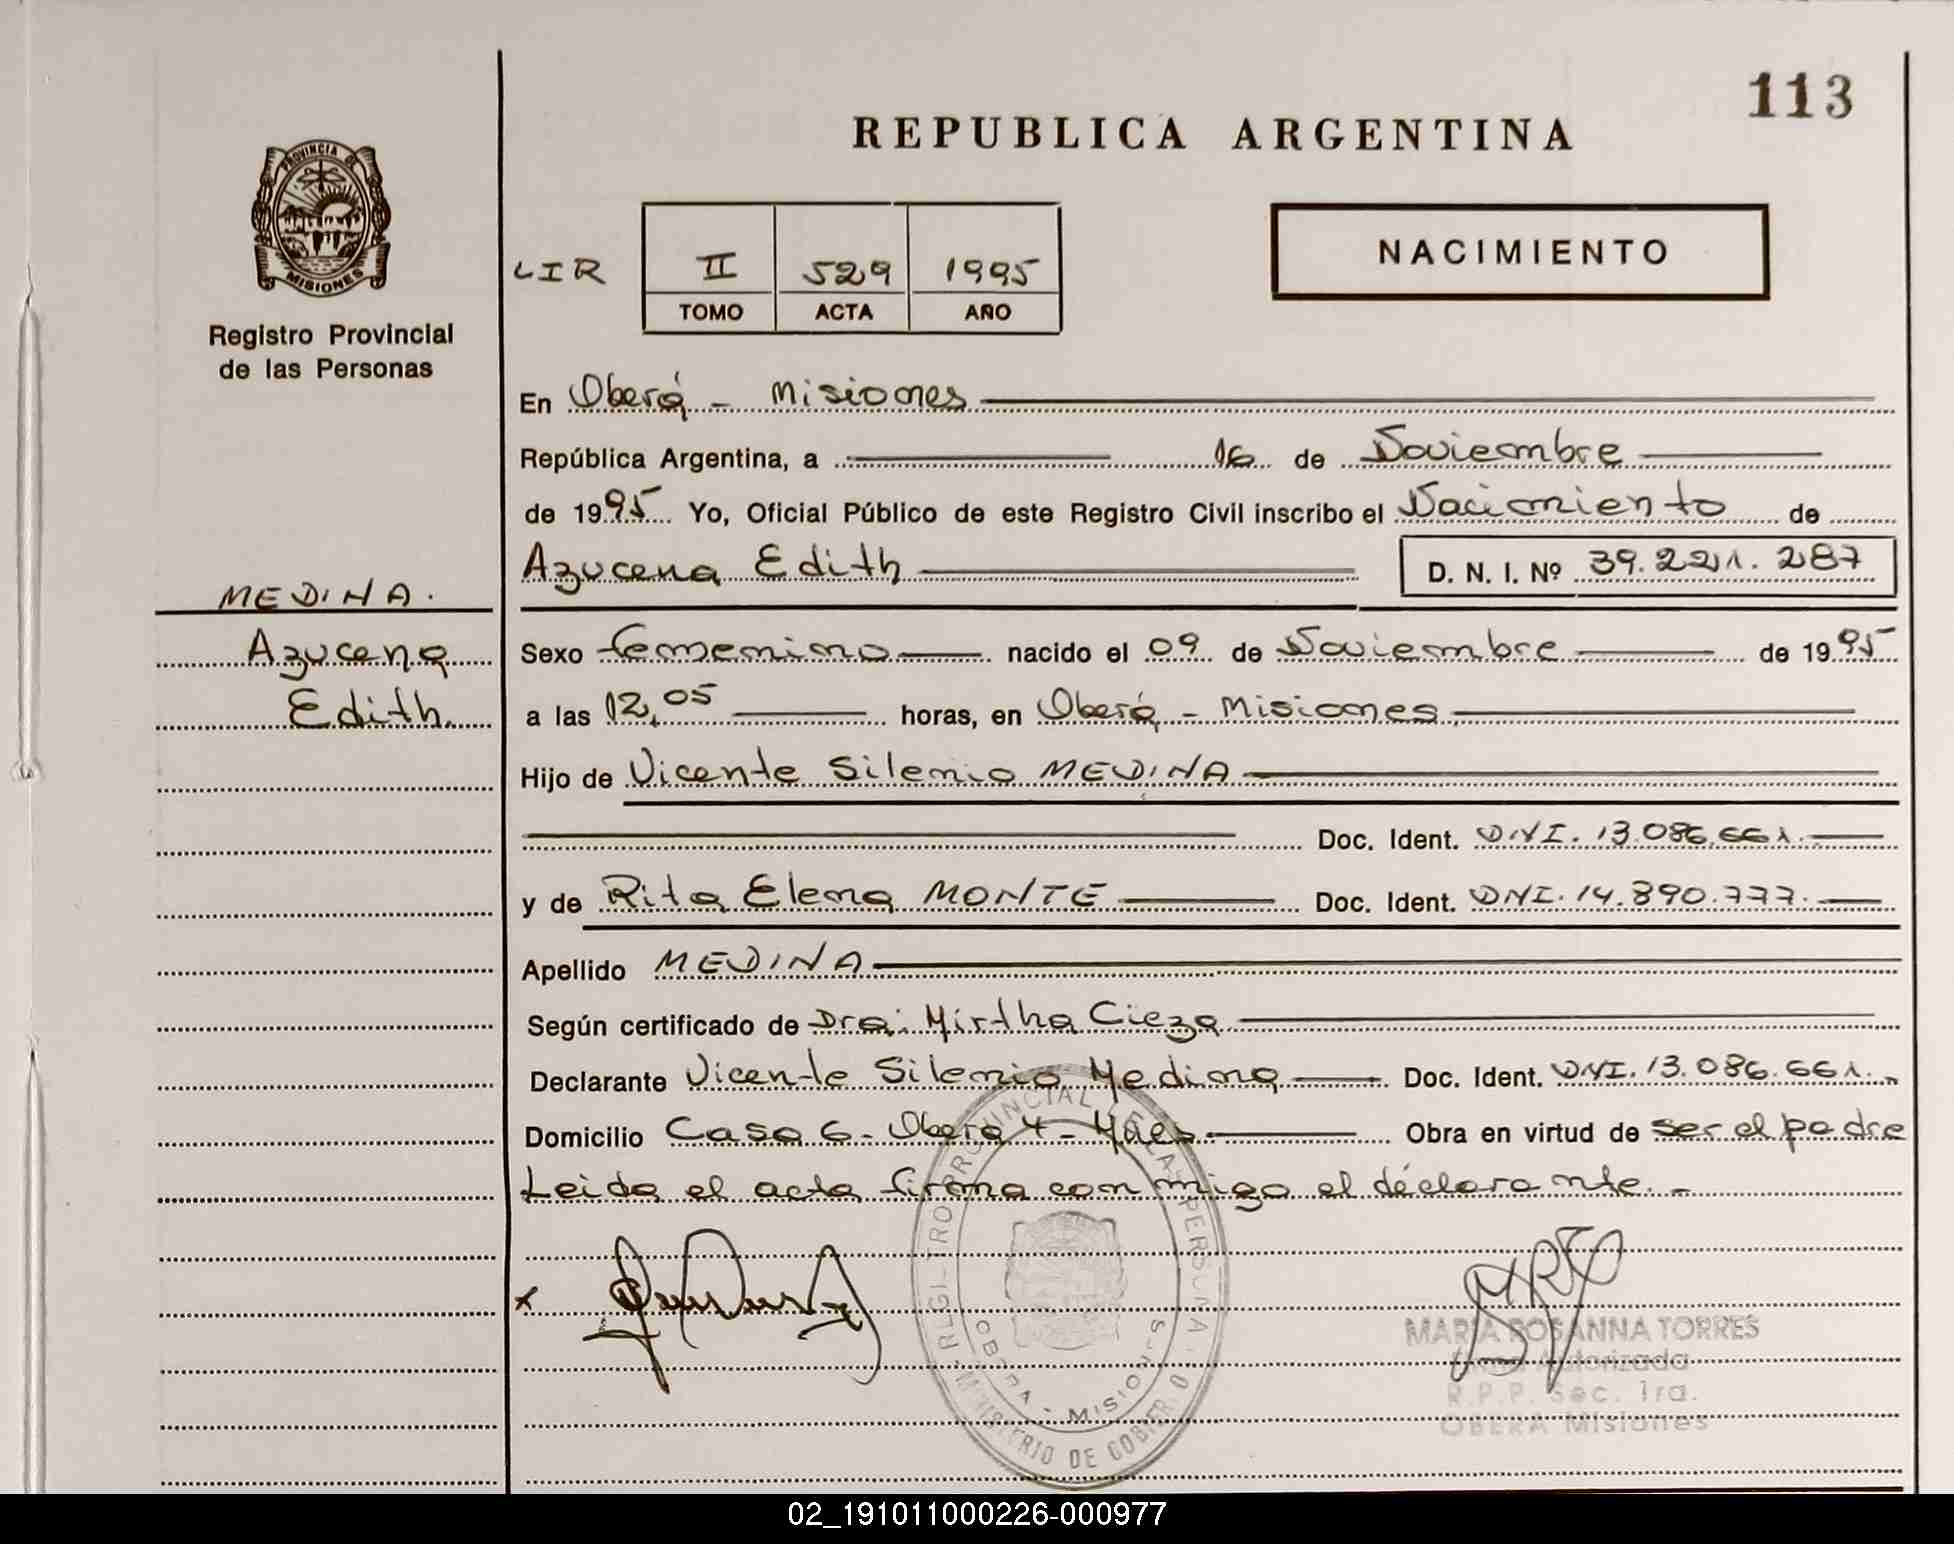 113
REPUBLICA ARGENTINA
PROVINCIA DE
MISIONES
Registro Provincial
de las Personas
LIR II 529 1995
TOMO ACTA AÑO
NACIMIENTO
En Oberá - Misiones
República Argentina, a 16 de Noviembre
de 1995 Yo, Oficial Público de este Registro Civil inscribo el Nacimiento de
Azucena Edith D. N. I. Nº 39.221.287
MEDINA.
Azucena
Edith.
Sexo femenino nacido el 09 de Noviembre de 1995
a las 12,05 horas, en Oberá - Misiones
Hijo de Vicente Silenio MEDINA
Doc. Ident. DNI. 13.086.661.
y de Rita Elena MONTE Doc. Ident. DNI. 14.890.777.
Apellido MEDINA
Según certificado de Dra. Mirtha Cieza
Declarante Vicente Silenio Medina Doc. Ident. DNI. 13.086.661.
Domicilio Casa 6 - Oberá 4 - Mnes Obra en virtud de ser el padre
Leida el acta firma conmigo el declarante. -
REGISTRO PROVINCIAL DE LAS PERSONAS
OBERA - MISIONES
MINISTERIO DE GOBIERNO
MARIA ROSANNA TORRES
Firma Autorizada
R.P.P. Sec. 1ra.
OBERA Misiones
02_191011000226-000977